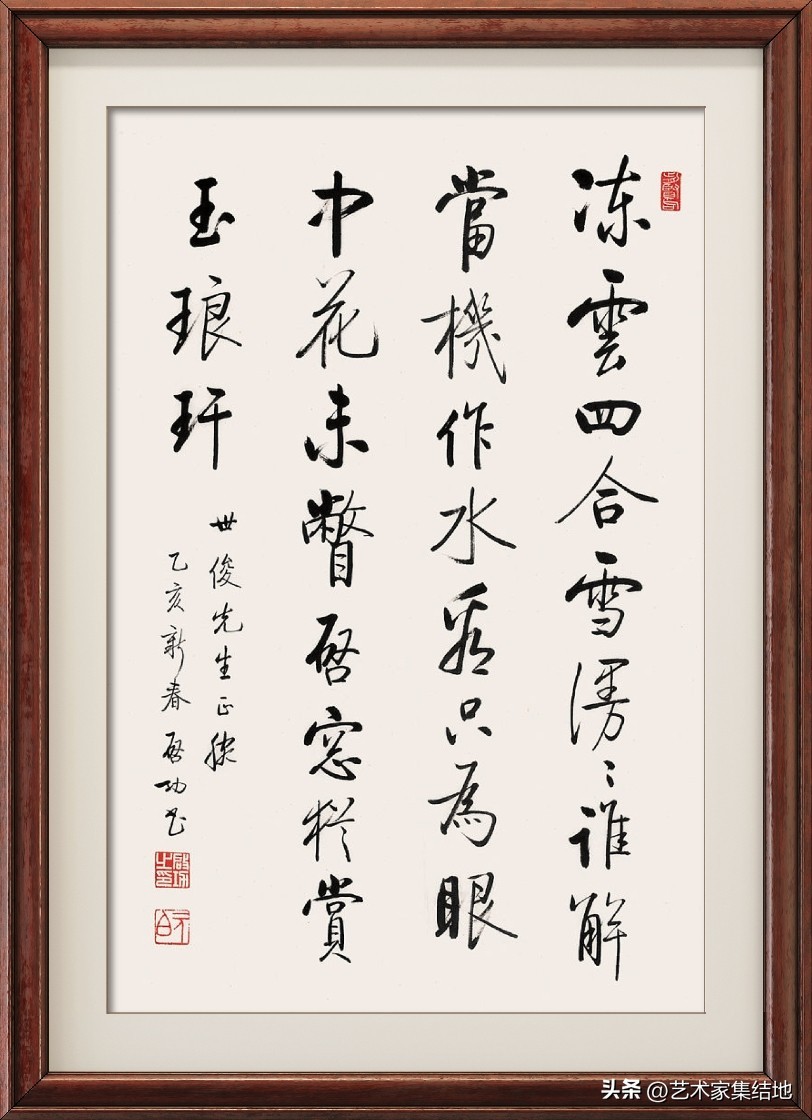 凍雲四合雪漫〻誰解
當機作水看只為眼
中花未瞥啓窓猶賞
玉琅玕
世俊先生正腕
乙亥新春啓功书
啓功之印
元白
头条 @艺术家集结地